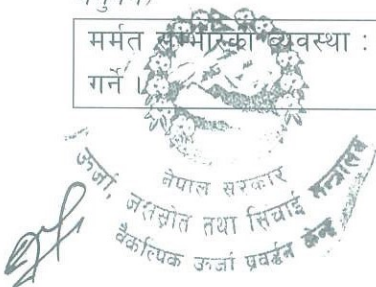 मर्मत सम्भारको व्यवस्था :
गर्ने ।
नेपाल सरकार
ऊर्जा, जलस्रोत तथा सिंचाई मन्त्रालय
वैकल्पिक ऊर्जा प्रवर्द्धन केन्द्र